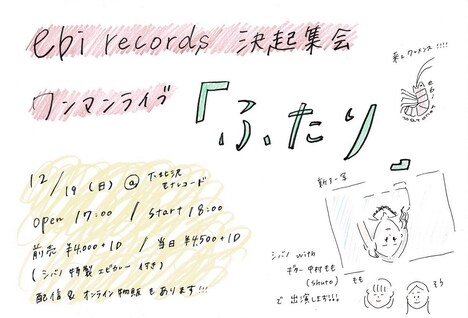 ebi records 決起集会
ワンマンライブ
「ふたり」
12/19(日) @ 下北沢モナレコード
open 17:00 / start 18:00
前売 ¥4,000+1D / 当日 ¥4,500+1D
(シバノ特製エビカレー付き)
配信& オンライン物販もあります!!!
シバノ with
ギター 中村もも
(shuto)
で出演します!!!
もも